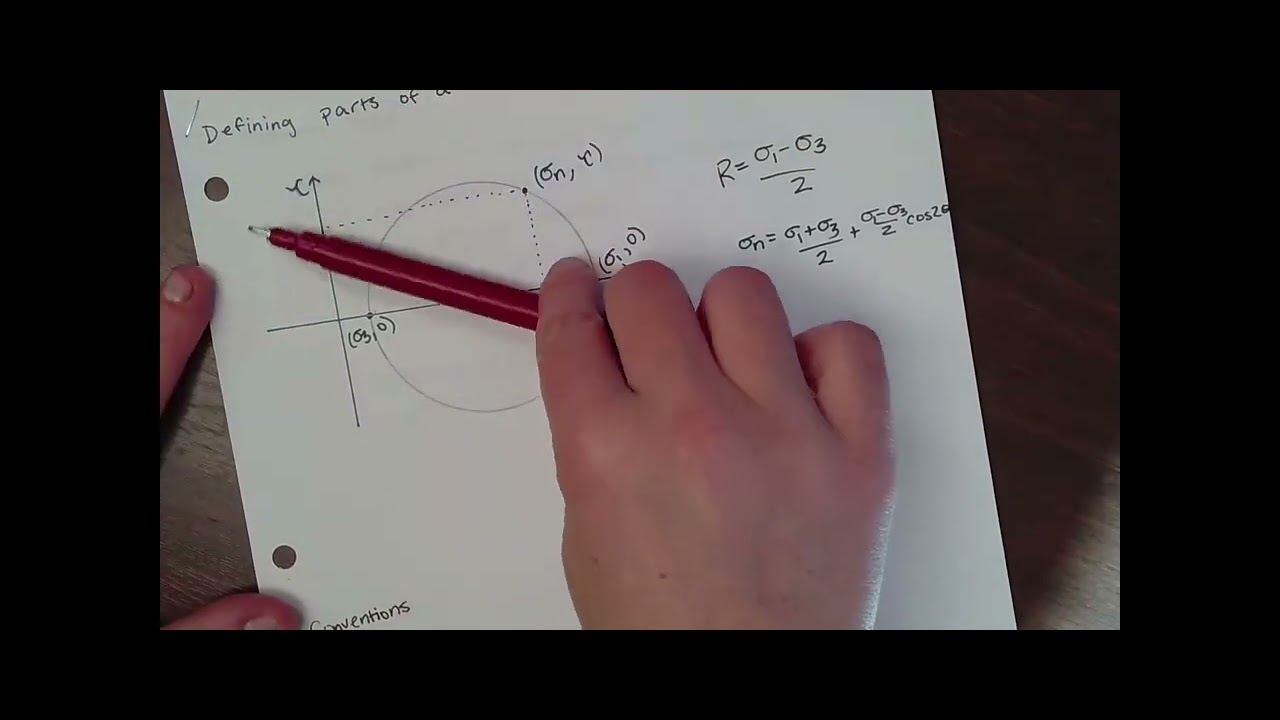 Defining parts of a
τ
(σn, τ)
(σ1, 0)
(σ3, 0)
R = σ1 - σ3 / 2
σn = σ1 + σ3 / 2 + σ1 - σ3 / 2 cos2θ
Conventions